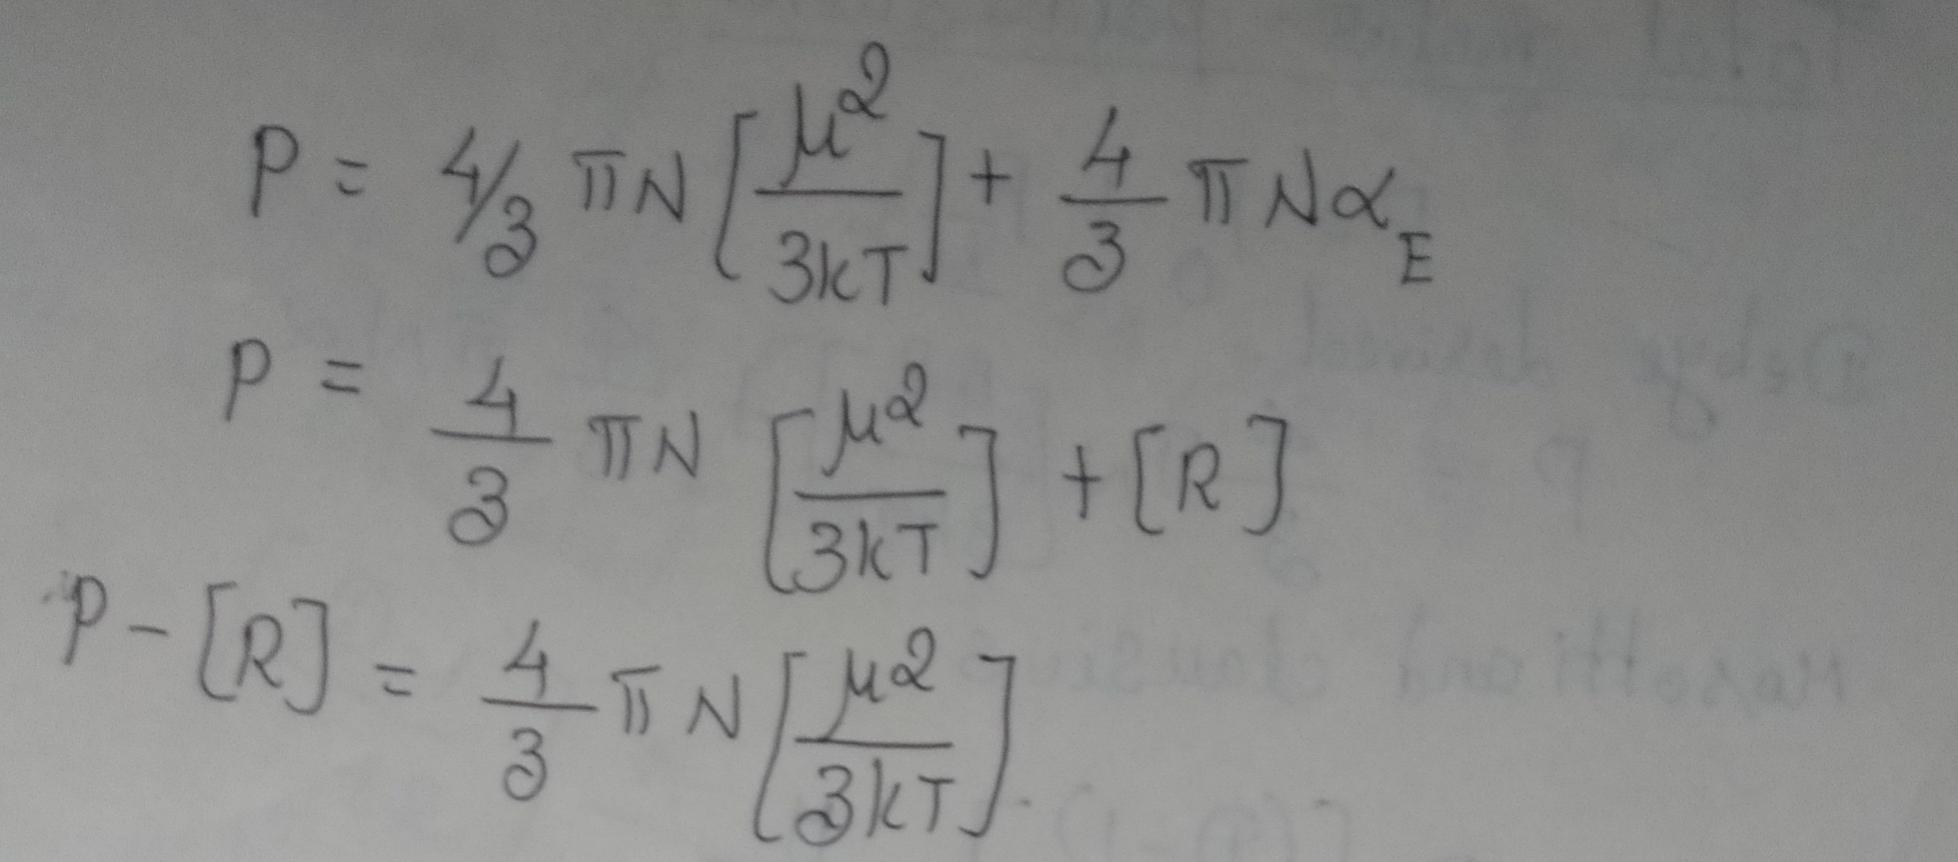 P = 4/3 πN [μ²/3kT] + 4/3 πNα_E
P = 4/3 πN [μ²/3kT] + [R]
P - [R] = 4/3 πN [μ²/3kT].